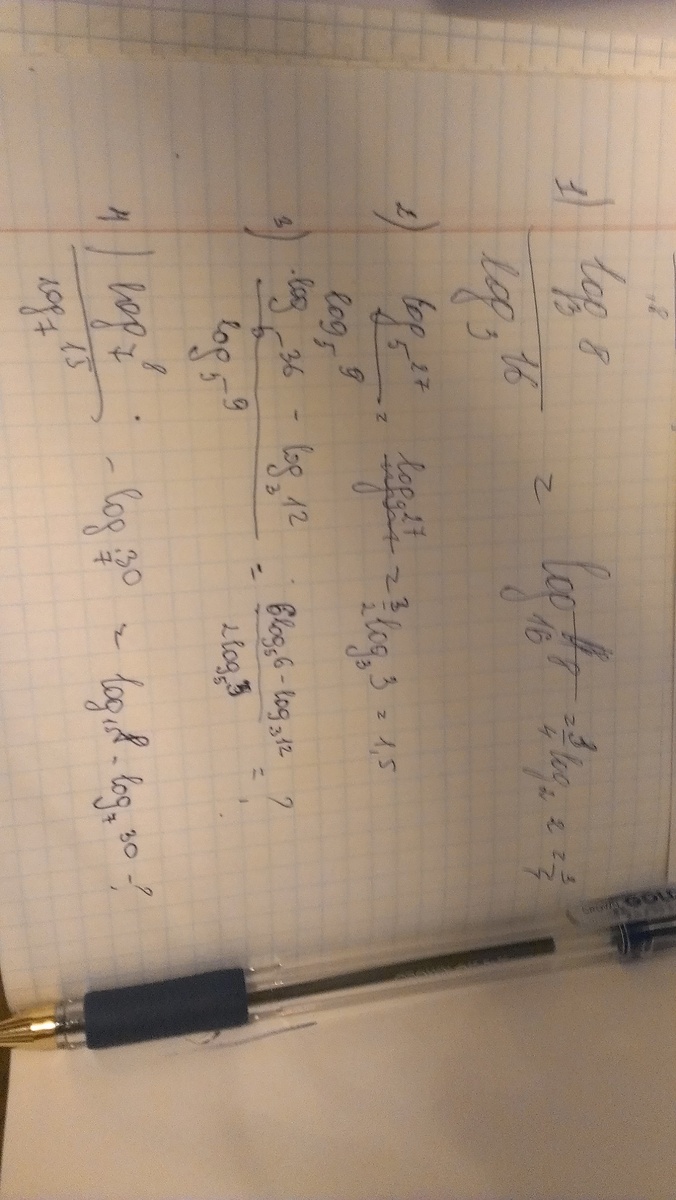 1) log₃ 8 / log₃ 16 = log₁₆ 8 = 3/4 log₂ 2 = 3/4
2) log₅ 27 / log₅ 9 = log₉ 27 = 3/2 log₃ 3 = 1,5
3) log₅ 36 - log₃ 12 / log₅ 9 = log₅ 6 - log₃ 12 / 2 log₅ 3 = ?
4) log₇ 8 / log₇ 15 - log₇ 30 = log₁₅ 8 - log₇ 30 - ?